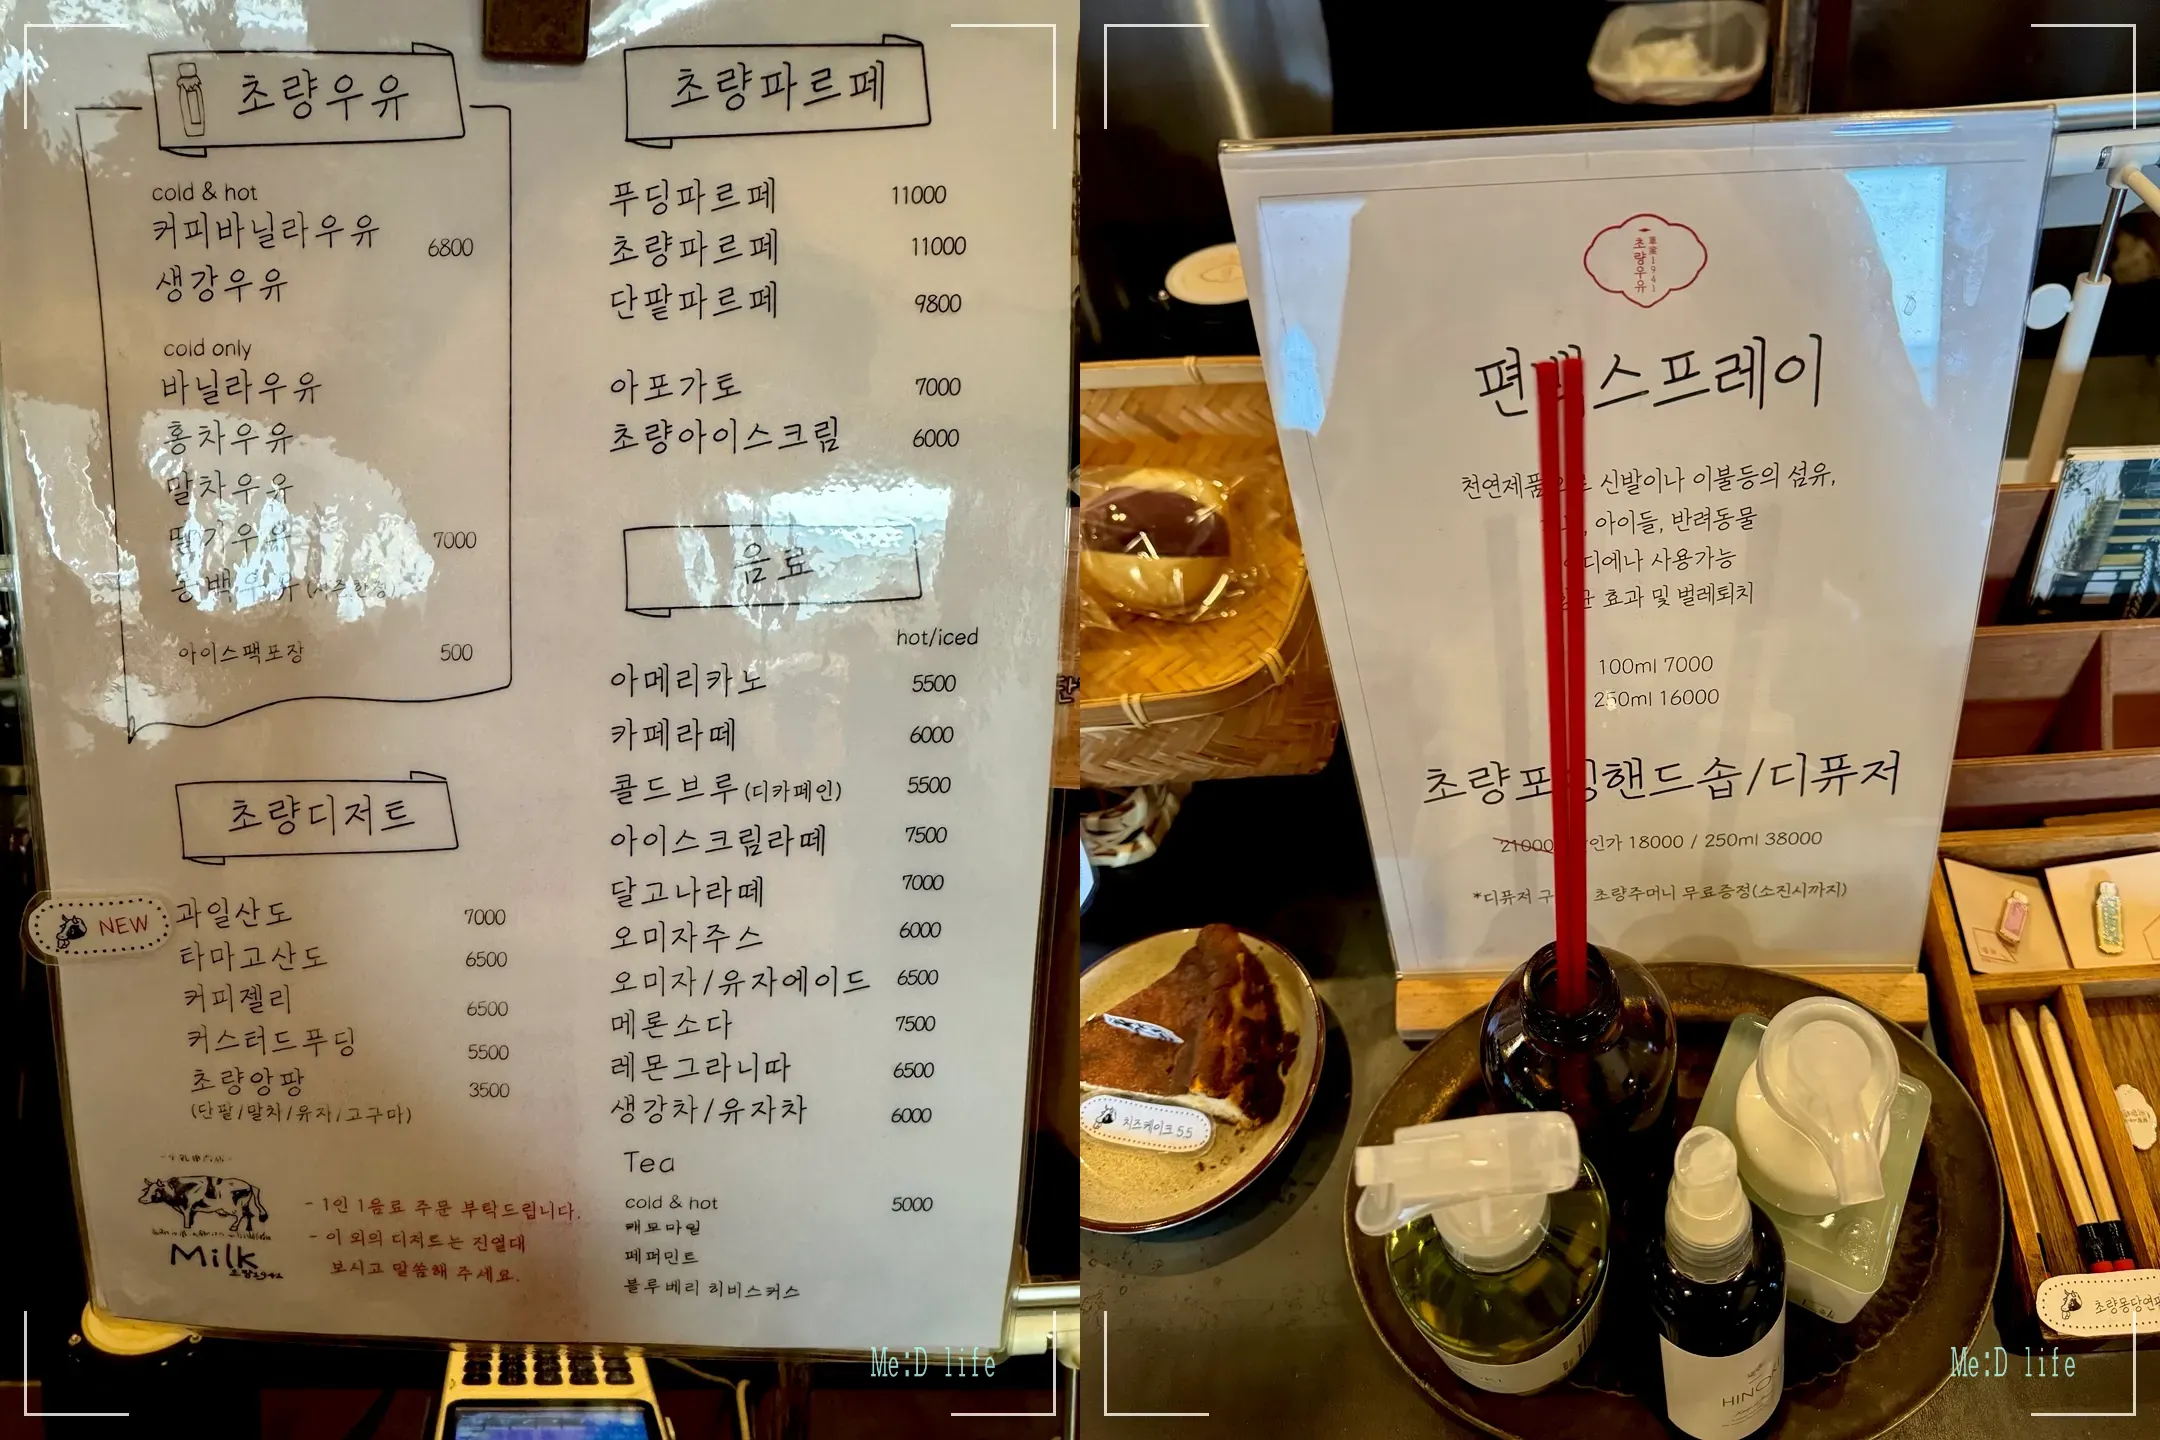 초량우유
cold & hot
커피바닐라우유
6800
생강우유
cold only
바닐라우유
홍차우유
말차우유
딸기우유
7000
동백우유
아이스팩포장 500
초량디저트
NEW
과일산도 7000
타마고산도 6500
커피젤리 6500
커스터드푸딩 5500
초량앙팡 3500
(단팥/말차/유자/고구마)
Milk
- 1인 1음료 주문 부탁드립니다.
- 이 외의 디저트는 진열대
보시고 말씀해 주세요.
초량파르페
푸딩파르페 11000
초량파르페 11000
단팥파르페 9800
아포가토 7000
초량아이스크림 6000
음료
hot/iced
아메리카노 5500
카페라떼 6000
콜드브루(디카페인) 5500
아이스크림라떼 7500
달고나라떼 7000
오미자주스 6000
오미자/유자에이드 6500
메론소다 7500
레몬그라니따 6500
생강차/유자차 6000
Tea
cold & hot 5000
캐모마일
페퍼민트
블루베리 히비스커스
Me:D life
초량우유
1941
편 스프레이
천연제품 신발이나 이불등의 섬유,
아이들, 반려동물
사용가능
효과 및 벌레퇴치
100ml 7000
250ml 16000
초량 핸드솝/디퓨저
21000 18000 / 250ml 38000
*디퓨저 초량주머니 무료증정(소진시까지)
치즈케이크 5.5
HINOKI
Me:D life